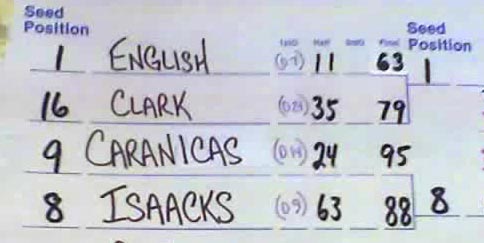 Seed Position Half Final Seed Position
1 ENGLISH 11 63 1
16 CLARK 35 79
9 CARANICAS 24 95
8 ISAACKS (09) 63 88 8